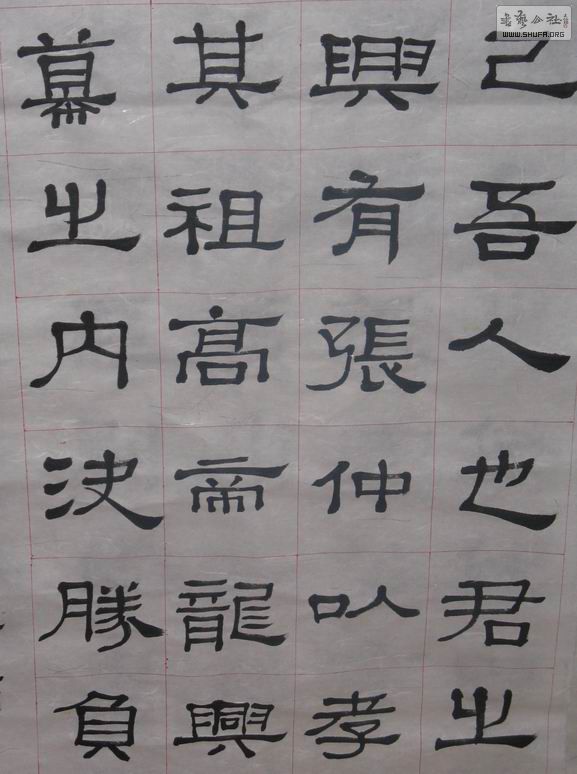 己吾人也君之
興有張仲以孝
其祖高帝龍興
幕之內決勝負
書藝公社
WWW.SHUFA.ORG